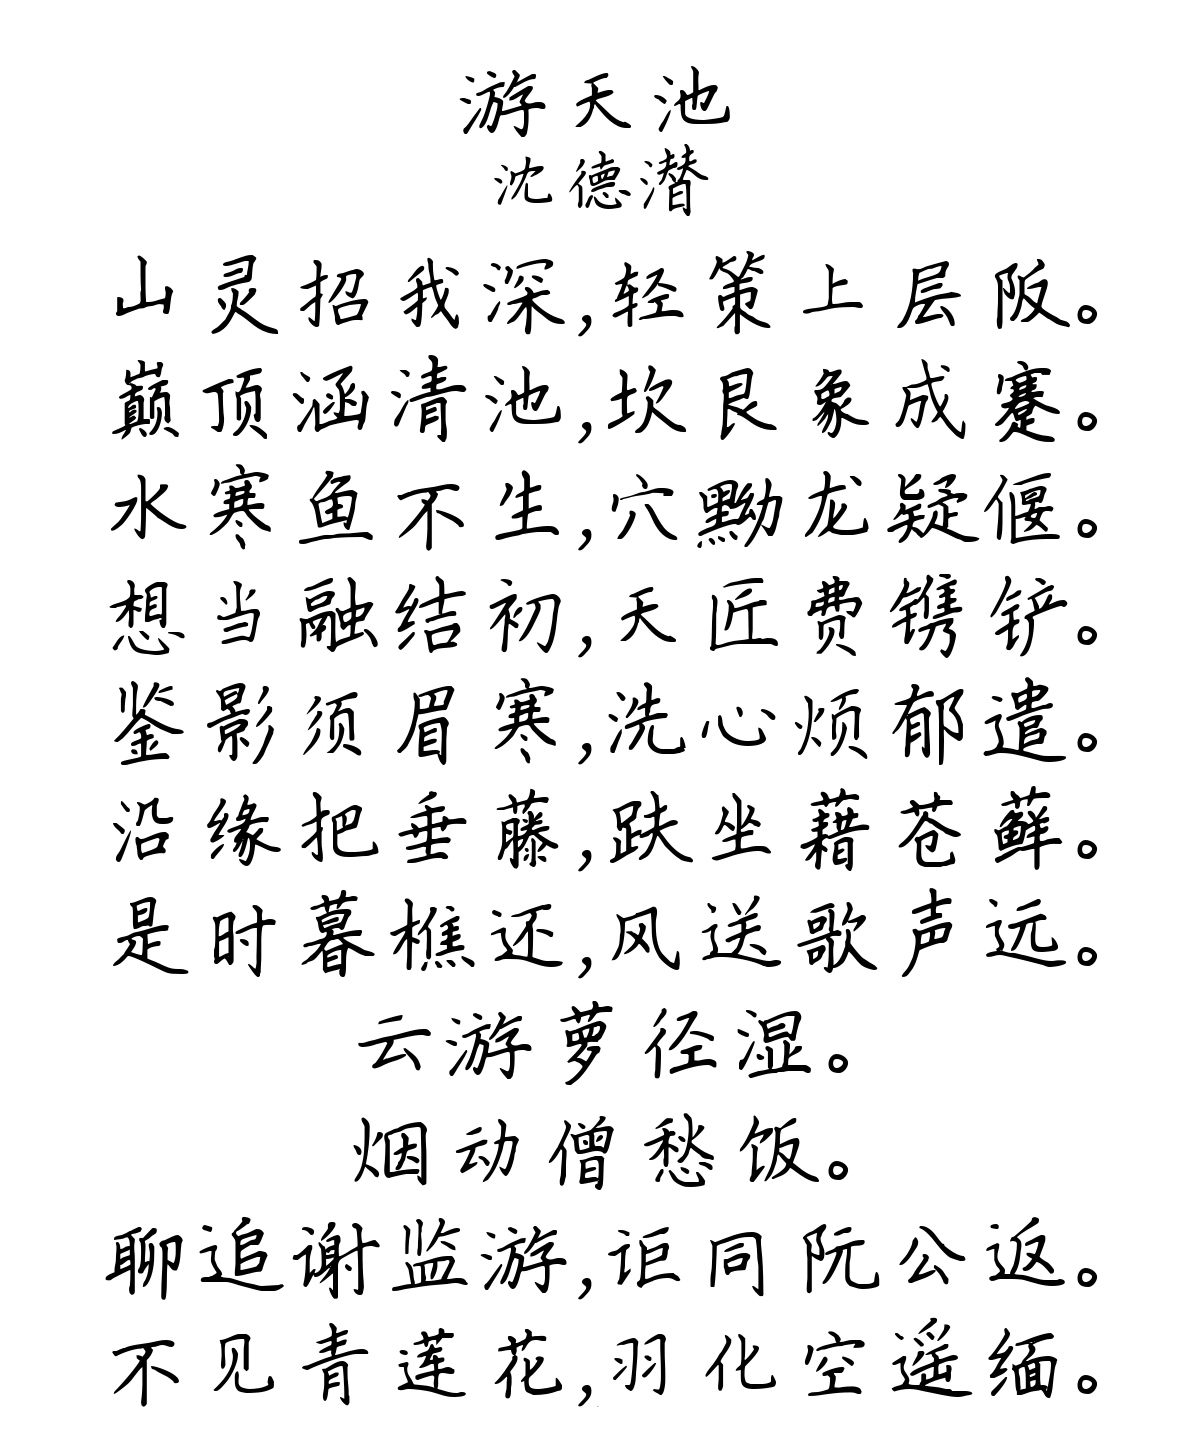 游天池
沈德潜
山灵招我深,轻策上层阪。
巅顶涵清池,坎艮象成蹇。
水寒鱼不生,穴黝龙疑偃。
想当融结初,天匠费镌铲。
鉴影须眉寒,洗心烦郁遣。
沿缘把垂藤,趺坐藉苍藓。
是时暮樵还,风送歌声远。
云游萝径湿。
烟动僧愁饭。
聊追谢监游,讵同阮公返。
不见青莲花,羽化空遥缅。